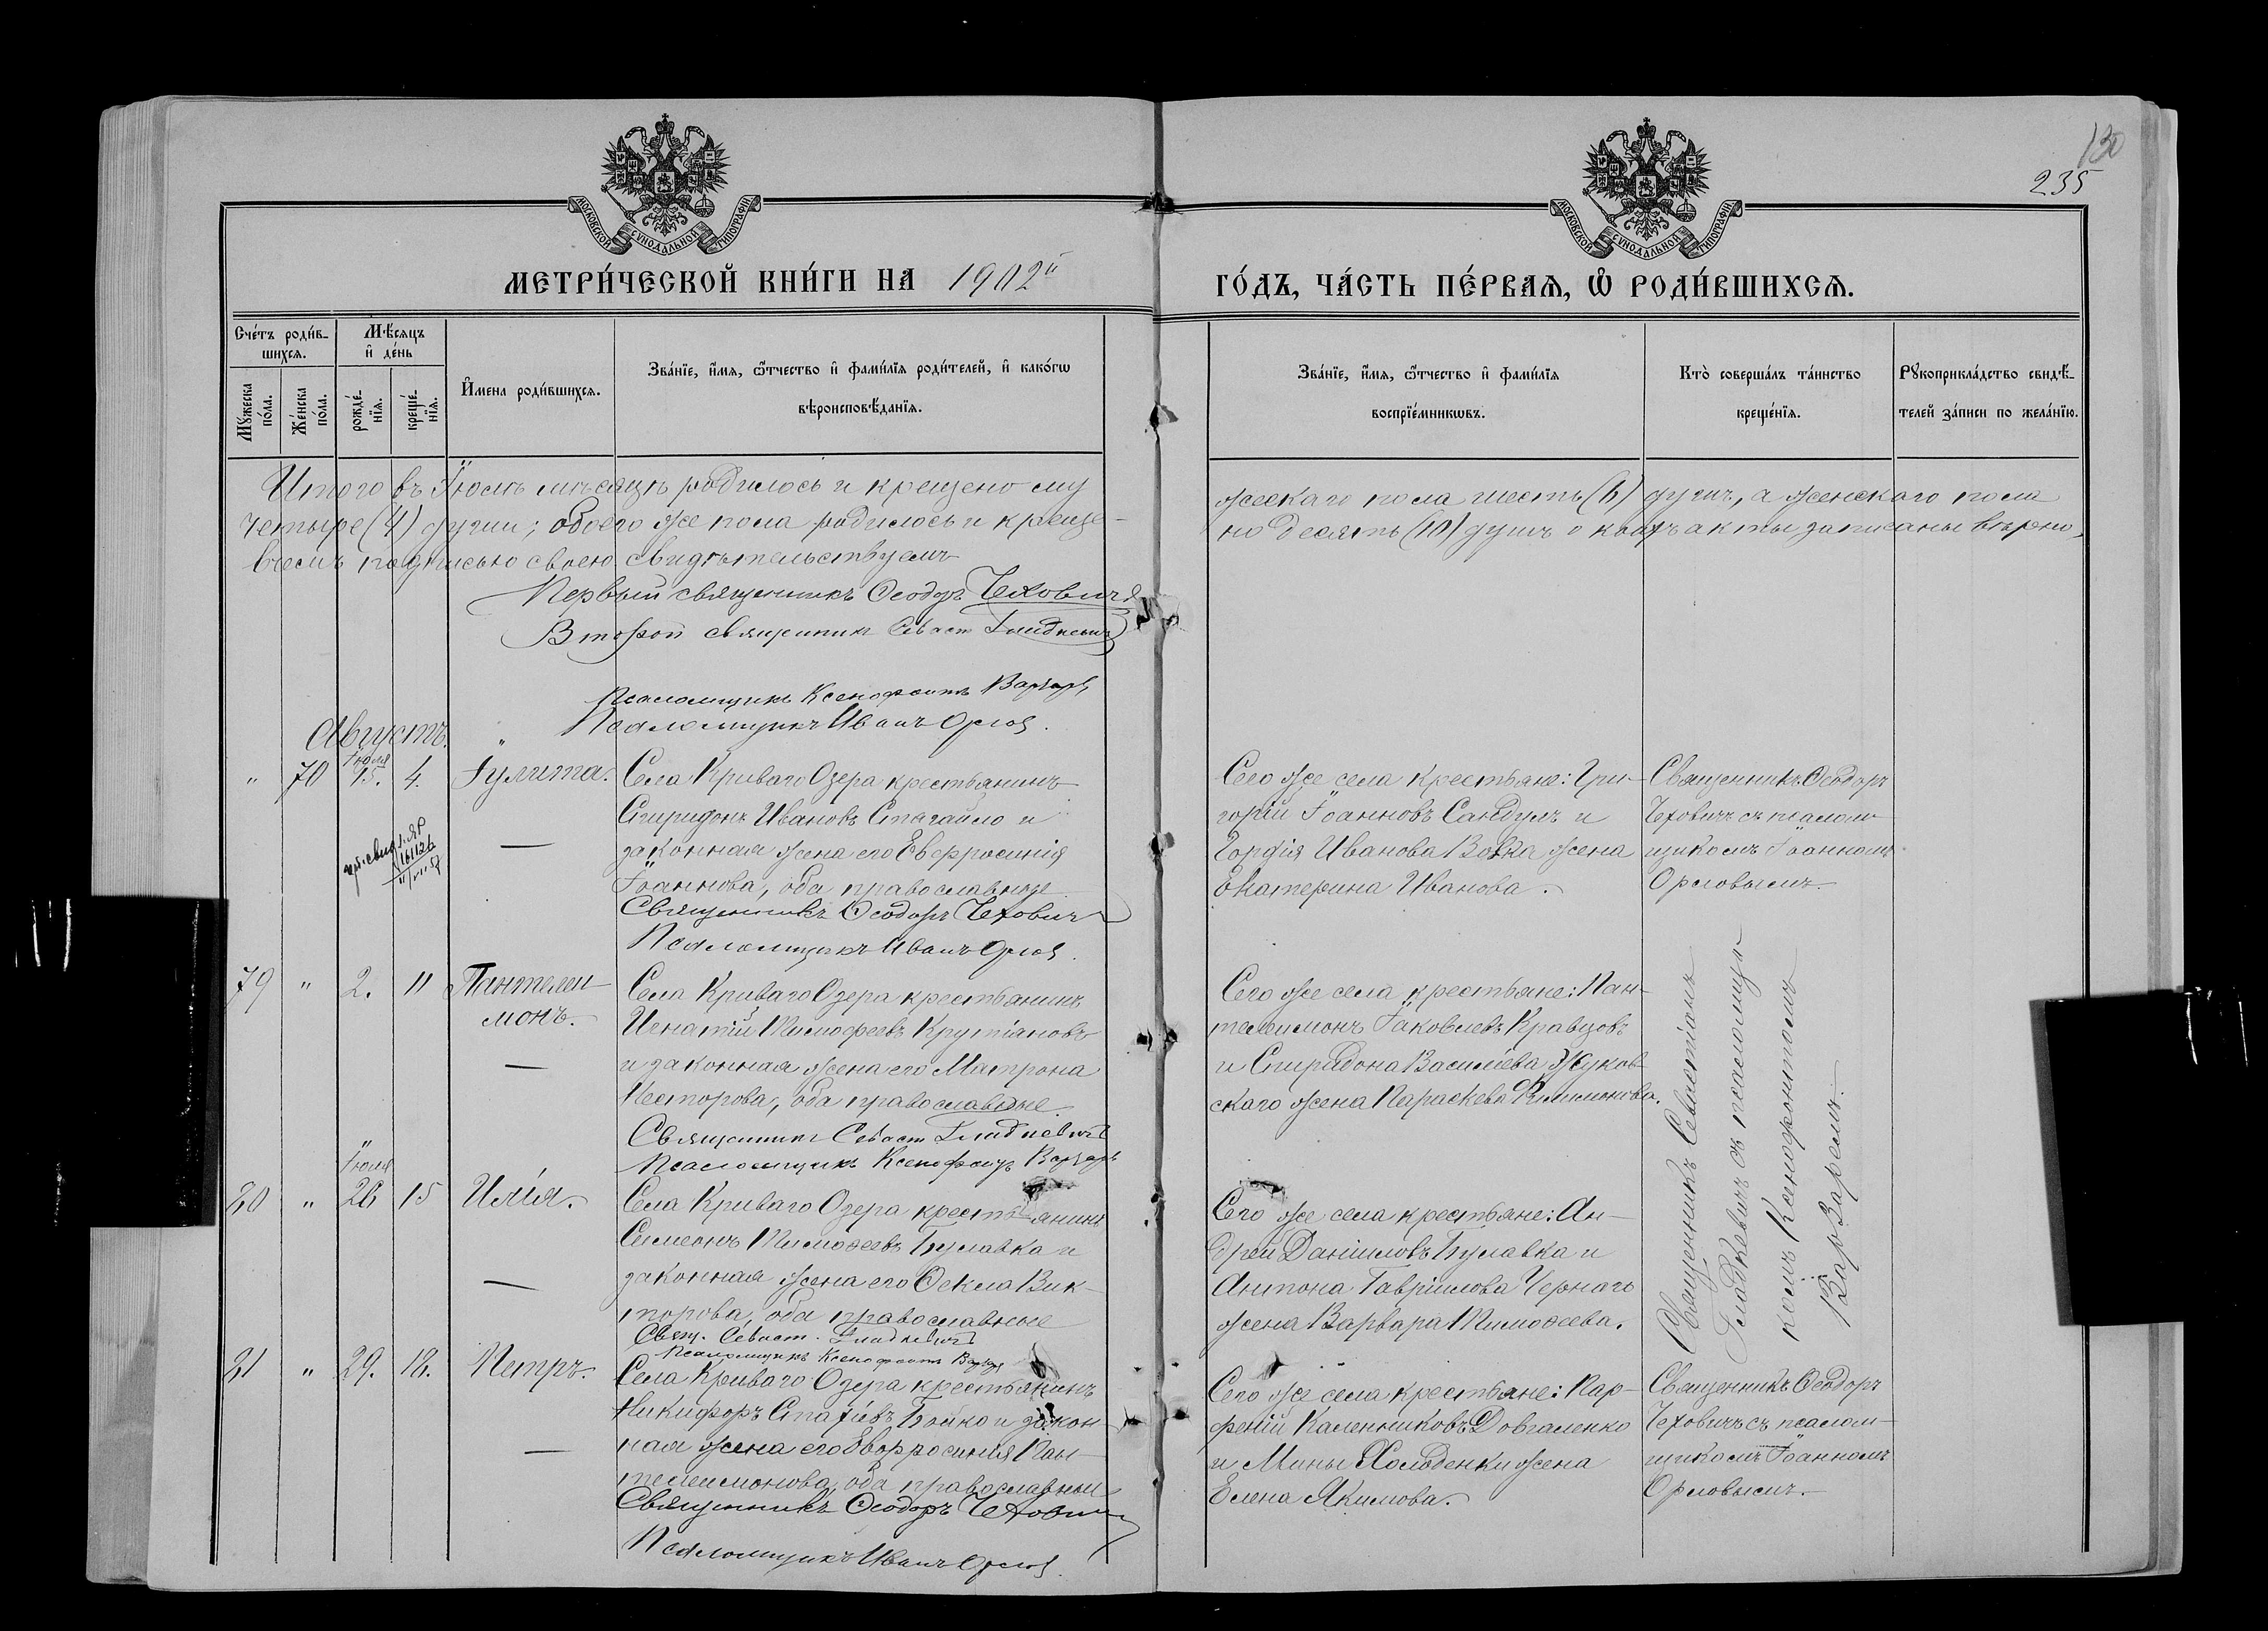 130
235
МОСКОВСКОЙ СУНОДАЛЬНОЙ ТИПОГРАФІИ
МОСКОВСКОЙ СУНОДАЛЬНОЙ ТИПОГРАФІИ
МЕТРИ́ЧЕСКОЙ КНИ́ГИ НА 1902й ГО́ДЪ, ЧА́СТЬ ПЕ́РВАѦ, Ѡ҆ РОДИ́ВШИХСѦ.
Сче́тъ роди́в-
шихсѧ.
Мѣ́сѧцъ
и҆ де́нь
Мꙋ́жеска по́ла.
Же́нска по́ла.
рожде́-
нїѧ.
креще́-
нїѧ.
И҆мена̀ роди́вшихсѧ.
Зва́нїе, и҆́мѧ, ѻ҆́тчество и҆ фами́лїѧ роди́телей, и҆ како́гѡ
вѣроисповѣ́данїѧ.
Зва́нїе, и҆́мѧ, ѻ҆́тчество и҆ фами́лїѧ
воспрїе́мникѡвъ.
Кто̀ соверша́лъ та́инство
креще́нїѧ.
Рꙋкоприкла́дство свидѣ́-
телей за́писи по жела́нїю.
Итого въ Іюлѣ мѣсяцѣ родилось и крещено му
жескаго пола шесть (6) душъ, а женскаго пола
четыре (4) души; обоего же пола родилось и креще-
но десять (10) душъ о коихъ акты записаны вѣрно,
въ чемъ подписью своею свидѣтельствуемъ
Первый священникъ Ѳеодоръ Чеховичъ
Второй священникъ Севаст Гладкевичъ
Псаломщикъ Ксенофонтъ Варзарь
Псаломщикъ Иванъ Орлов.
Августъ.
" 70 Іюля 15. 4. Іулита.
Села Криваго Озера крестьянинъ
Спиридонъ Ивановъ Стагайло и
законная жена его Евфросинія
Іоаннова, оба православные
Священникъ Ѳеодоръ Чеховичъ
Псаломщикъ Иванъ Орлов.
Сего же села крестьяне: Гри-
горій Іоанновъ Сандулъ и
Гордія Иванова Вовка жена
Екатерина Иванова.
Священникъ Ѳеодоръ
Чеховичъ съ псалом-
щикомъ Іоанномъ
Орловымъ.
79 " 2. 11 Пантелеи-
монъ.
Села Криваго Озера крестьянинъ
Игнатій Тимофеевъ Крутіяновъ
и законная жена его Матрона
Несторова, оба православные.
Священникъ Севаст Гладкевичъ
Псаломщикъ Ксенофонтъ Варзарь
Сего же села крестьяне: Пан-
телеимонъ Іаковлевъ Кравцовъ
и Спиридона Василіева Жуков-
скаго жена Параскева Филимонова.
Священникъ Севастіанъ
Гладкевичъ съ псаломщи-
комъ Ксенофонтомъ
Варзаремъ.
80 " Іюля 26 15 Илія.
Села Криваго Озера крестьянинъ
Симеонъ Тимоѳеевъ Булавка и
законная жена его Ѳекла Вик-
торова, оба православные
Свящ. Севаст. Гладкевичъ
Псаломщикъ Ксенофонтъ Варзарь
Сего же села крестьяне: Ан-
дрей Даніиловъ Булавка и
Антона Гавріилова Чернаго
жена Варвара Тимоѳеева.
81 " 29. 18. Петръ.
Села Криваго Озера крестьянинъ
Никифоръ Бойко и закон-
ная жена его Евфросинія Пан-
телеимонова, оба православные
Священникъ Ѳеодоръ Чеховичъ
Псаломщикъ Иванъ Орлов.
Сего же села крестьяне: Пар-
феній Каленниковъ Довгаленко
и Мины Холоденки жена
Елена Якимова.
Священникъ Ѳеодоръ
Чеховичъ съ псалом-
щикомъ Іоанномъ
Орловымъ.